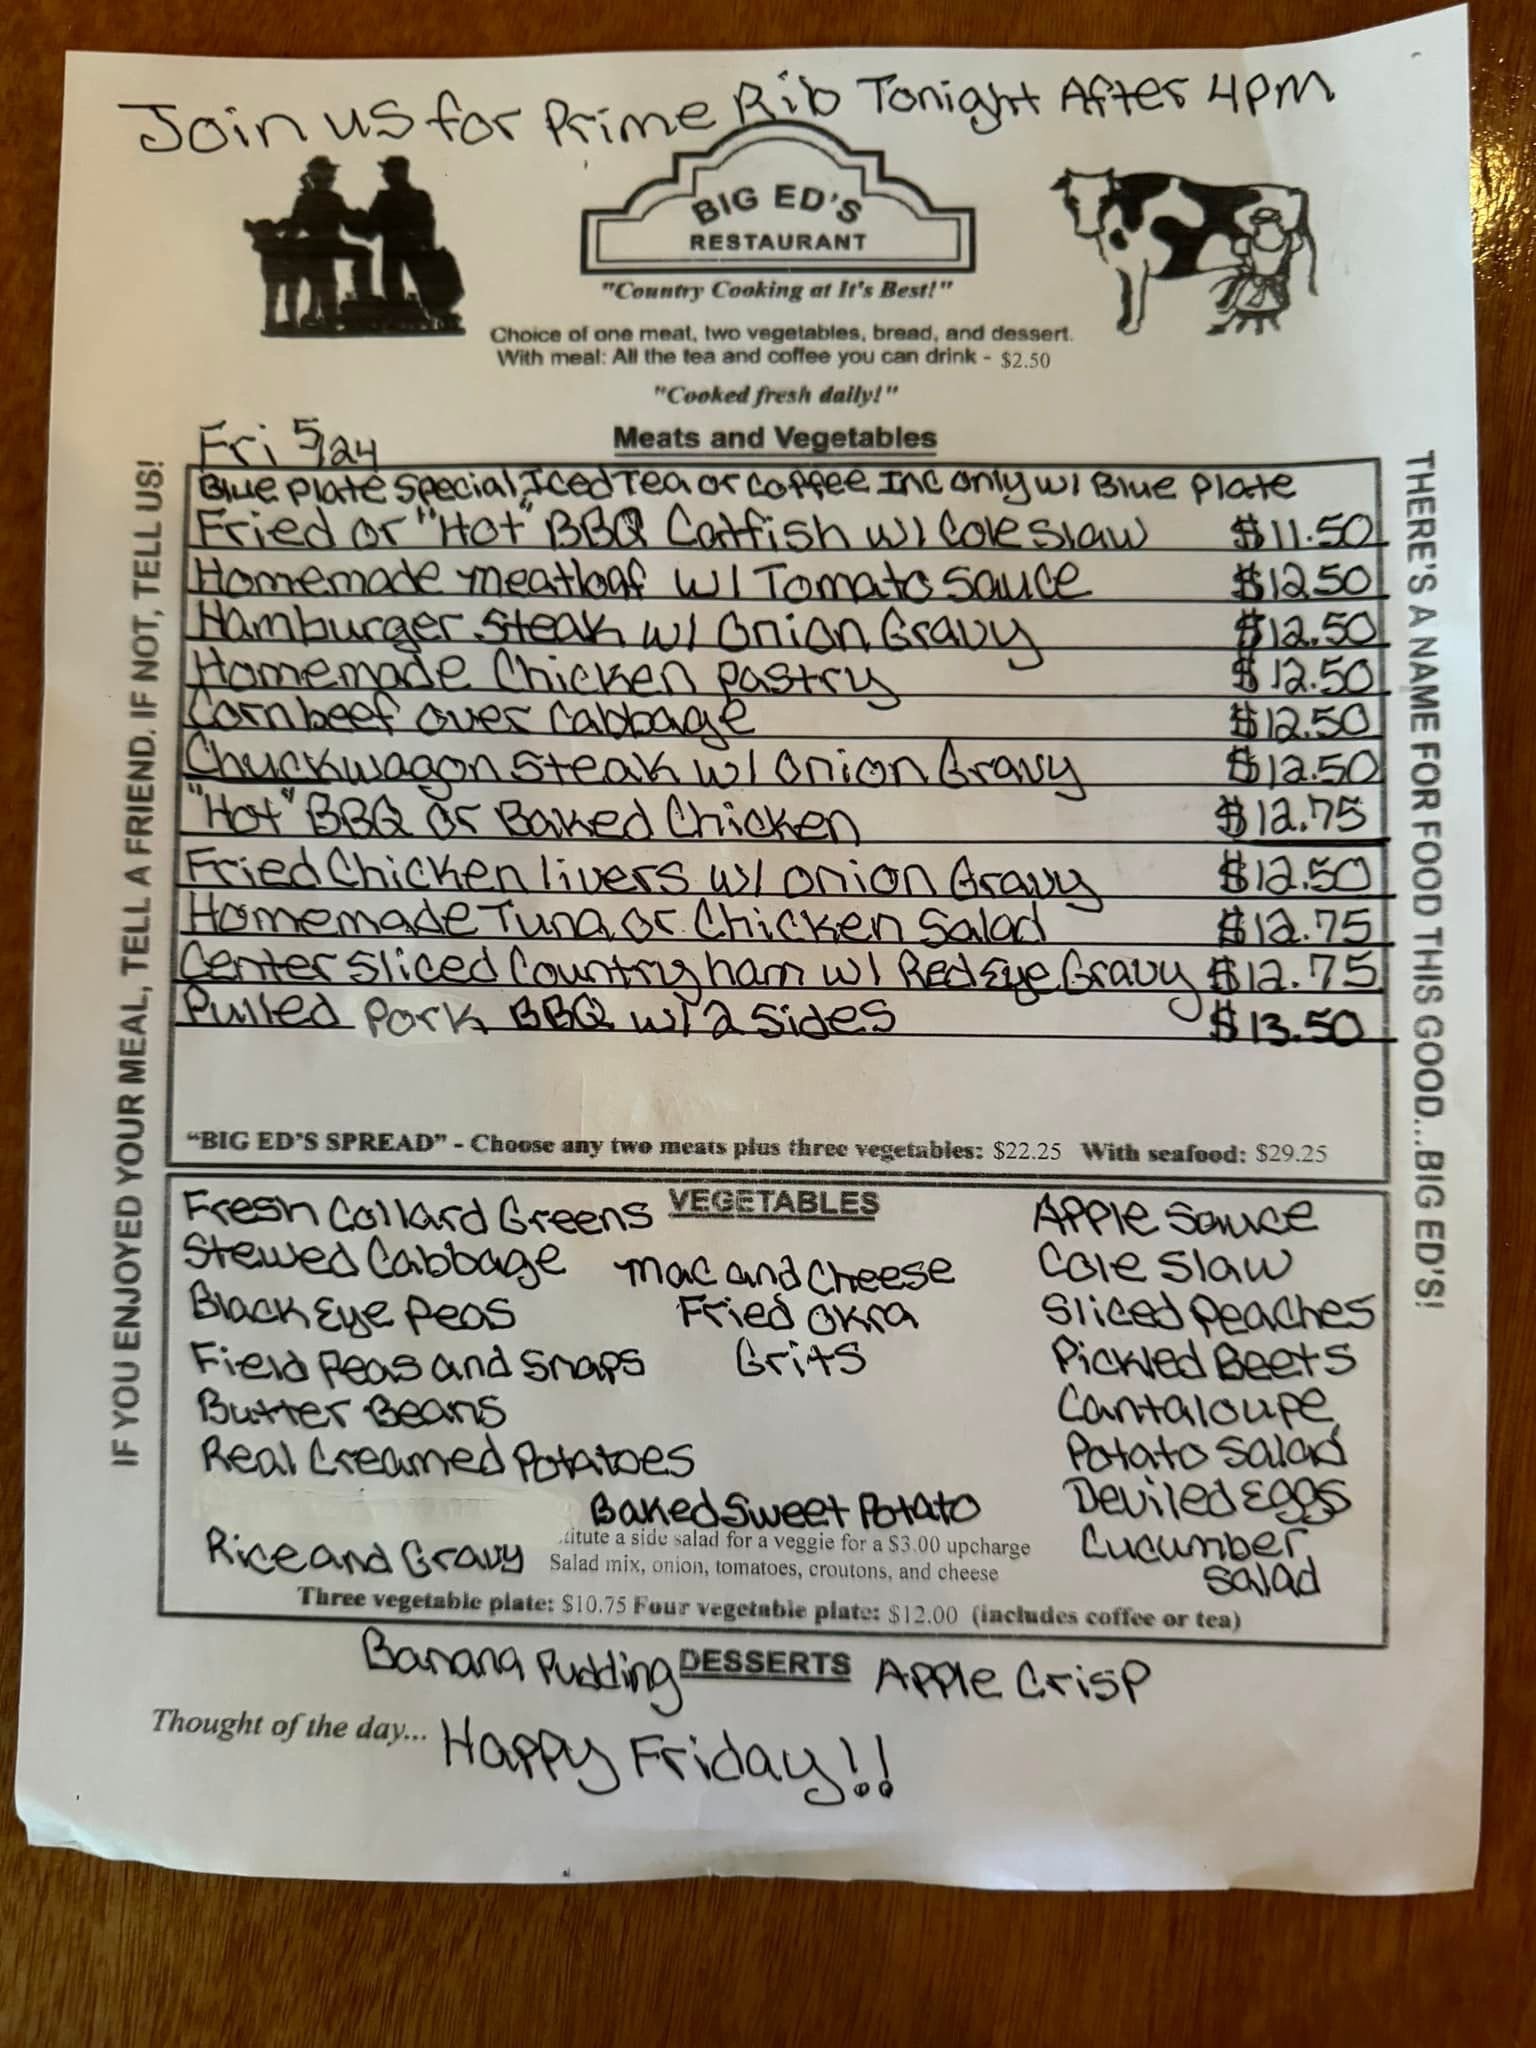 Join us for Prime Rib Tonight After 4pm
BIG ED'S
RESTAURANT
"Country Cooking at It's Best!"
Choice of one meat, two vegetables, bread, and dessert.
With meal: All the tea and coffee you can drink - $2.50
"Cooked fresh daily!"
Fri 5/24
Meats and Vegetables
Blue Plate Special, Iced Tea or Coffee Inc only w/ Blue Plate
Fried or "Hot" BBQ Catfish w/ Cole Slaw $11.50
Homemade meatloaf w/ Tomato Sauce $12.50
Hamburger Steak w/ Onion Gravy $12.50
Homemade Chicken pastry $12.50
Cornbeef over Cabbage $12.50
Chuckwagon Steak w/ Onion Gravy $12.50
"Hot" BBQ or Baked Chicken $12.75
Fried Chicken livers w/ onion Gravy $12.50
Homemade Tuna or Chicken Salad $12.75
Center Sliced Country ham w/ Red Eye Gravy $12.75
Pulled Pork BBQ w/ 2 sides $13.50
"BIG ED'S SPREAD" - Choose any two meats plus three vegetables: $22.25 With seafood: $29.25
IF YOU ENJOYED YOUR MEAL, TELL A FRIEND. IF NOT, TELL US!
THERE'S A NAME FOR FOOD THIS GOOD...BIG ED'S!
VEGETABLES
Fresh Collard Greens
Stewed Cabbage
Black Eye Peas
Field Peas and Snaps
Butter Beans
Real Creamed Potatoes
Rice and Gravy
Mac and Cheese
Fried Okra
Grits
Baked Sweet Potato
Apple Sauce
Cole Slaw
Sliced Peaches
Pickled Beets
Cantaloupe
Potato Salad
Deviled Eggs
Cucumber
Salad
titute a side salad for a veggie for a $3.00 upcharge
Salad mix, onion, tomatoes, croutons, and cheese
Three vegetable plate: $10.75 Four vegetable plate: $12.00 (includes coffee or tea)
Banana Pudding DESSERTS Apple Crisp
Thought of the day... Happy Friday!!